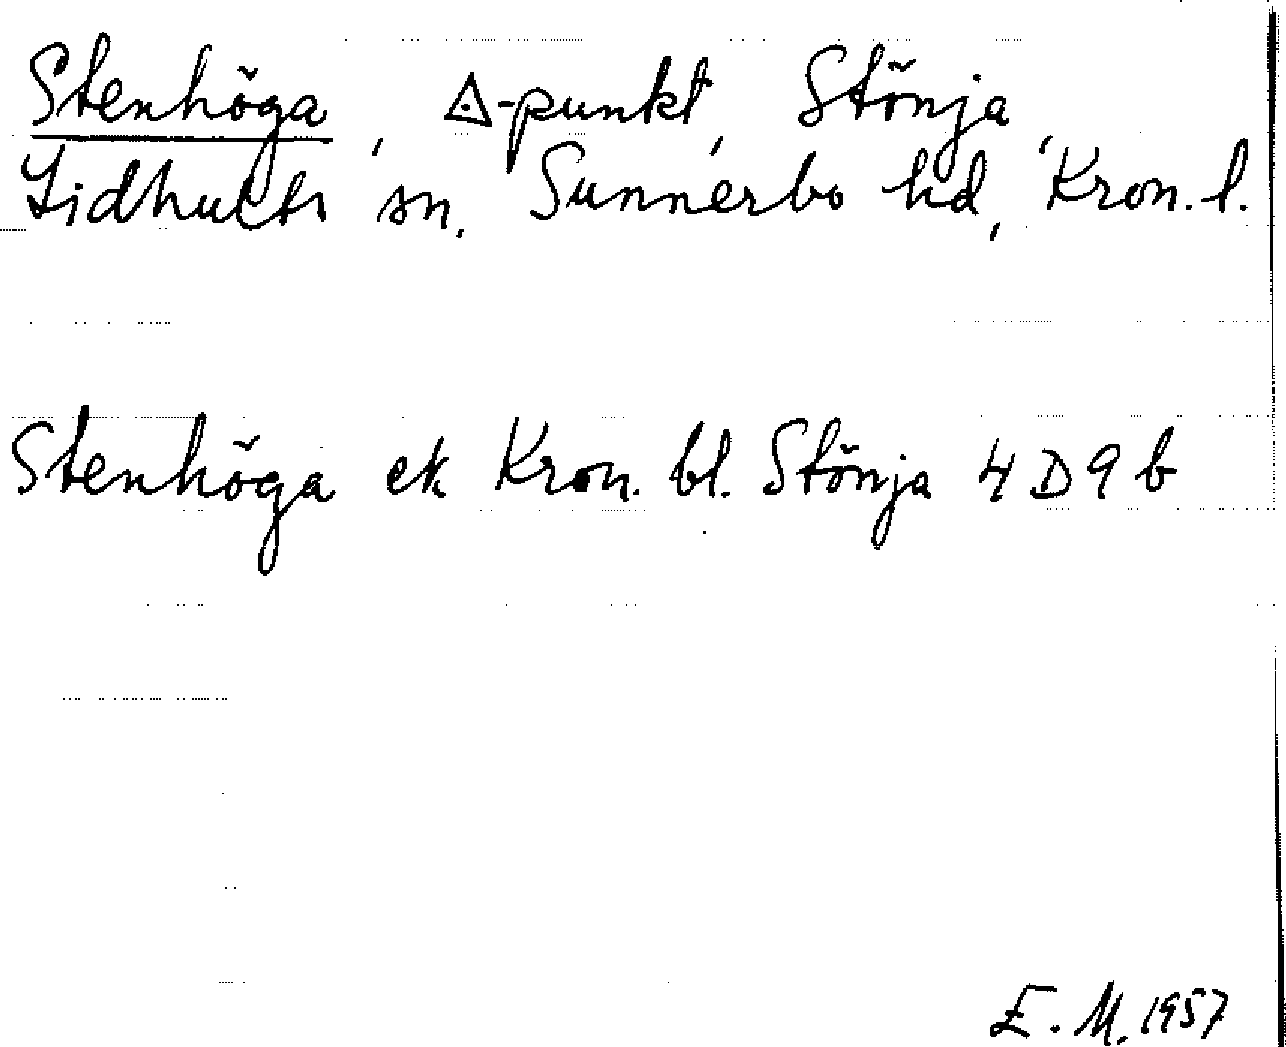 Stenhöga, ◬-punkt, Stönja,
Lidhults sn. Sunnerbo hd, Kron. l.
Stenhöga ek Kron. bl. Stönja 4D9b
E. M. 1957